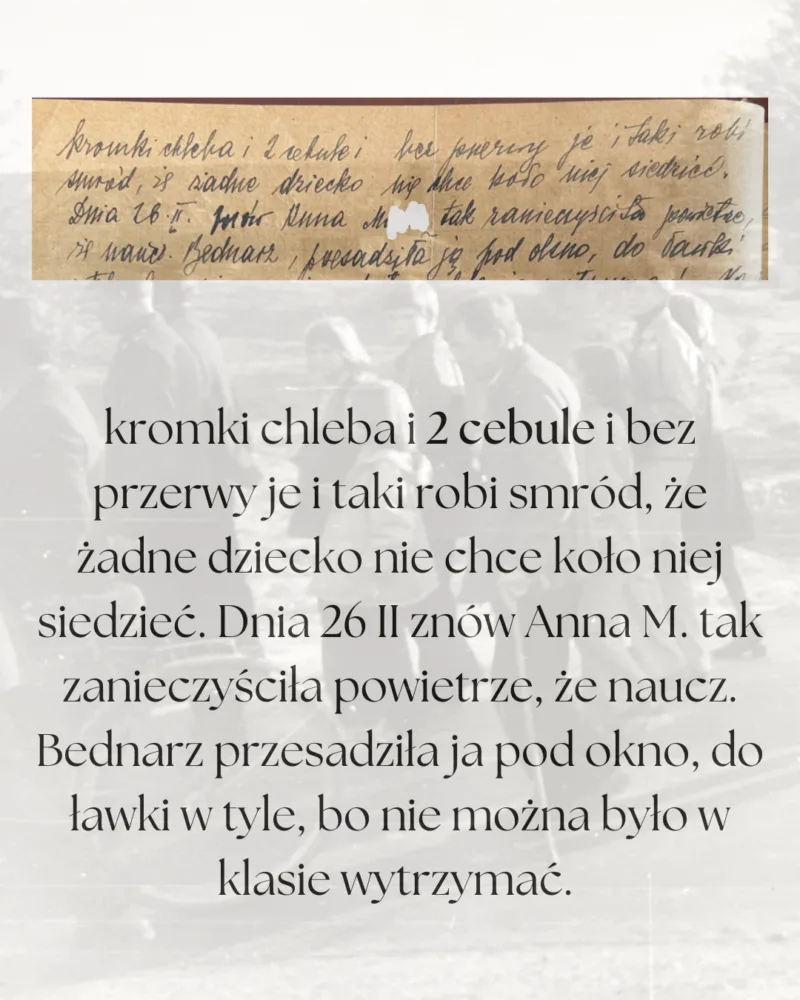 kromki chleba i 2 cebule i bez przerwy je i taki robi
smród, że żadne dziecko nie chce koło niej siedzieć.
Dnia 26.II. znów Anna M. tak zanieczyściła powietrze,
że naucz. Bednarz, przesadziła ją pod okno, do ławki
kromki chleba i 2 cebule i bez
przerwy je i taki robi smród, że
żadne dziecko nie chce koło niej
siedzieć. Dnia 26 II znów Anna M. tak
zanieczyściła powietrze, że naucz.
Bednarz przesadziła ja pod okno, do
ławki w tyle, bo nie można było w
klasie wytrzymać.